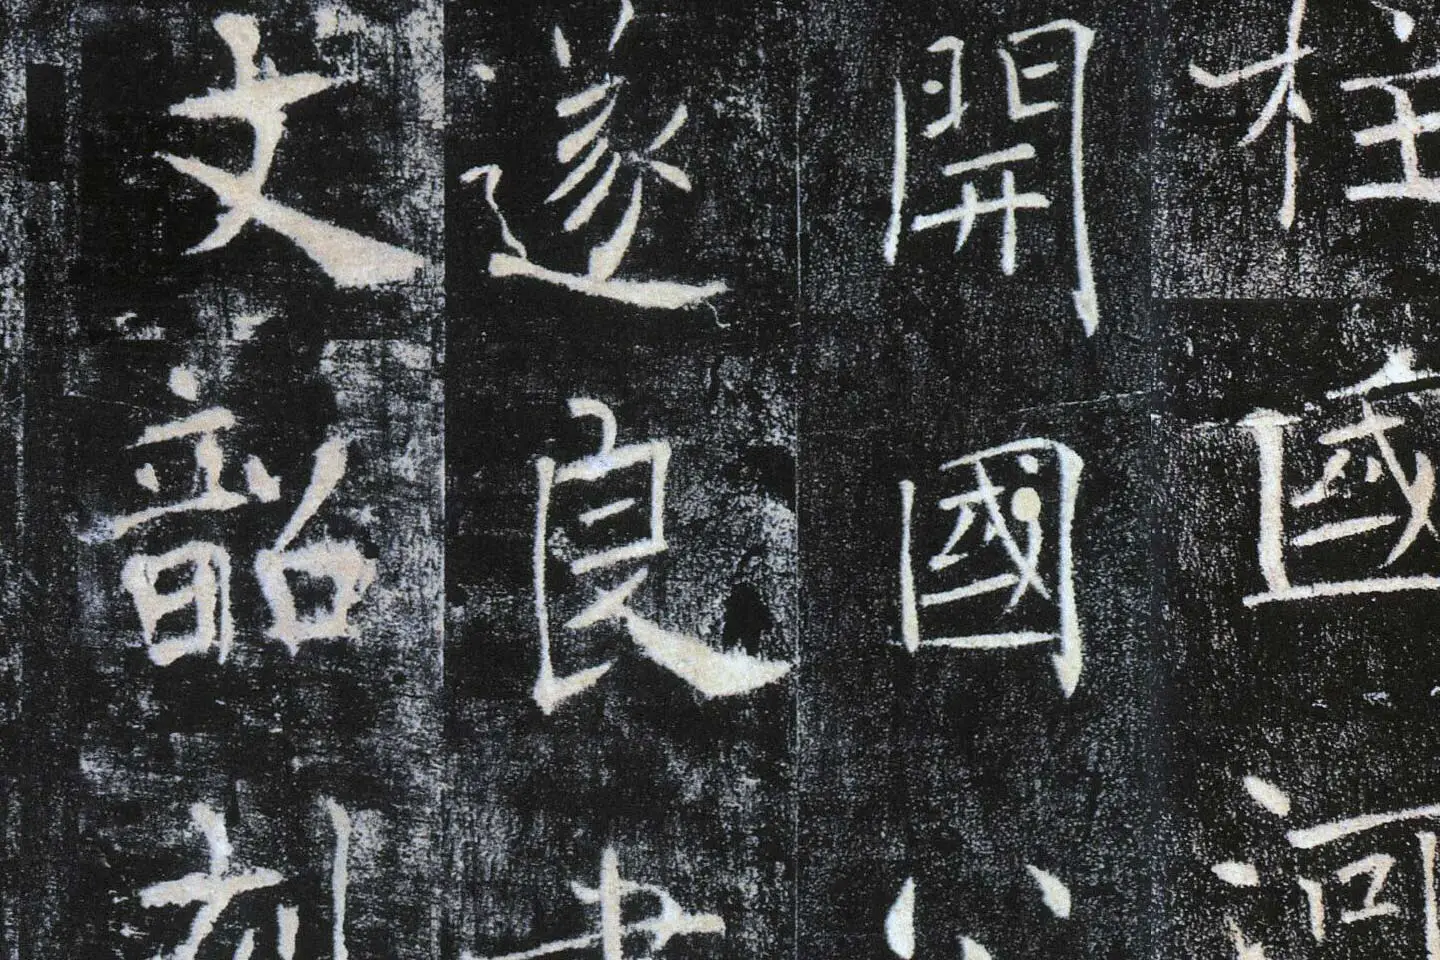 柱國河
開國公
遂良書
文韶刻